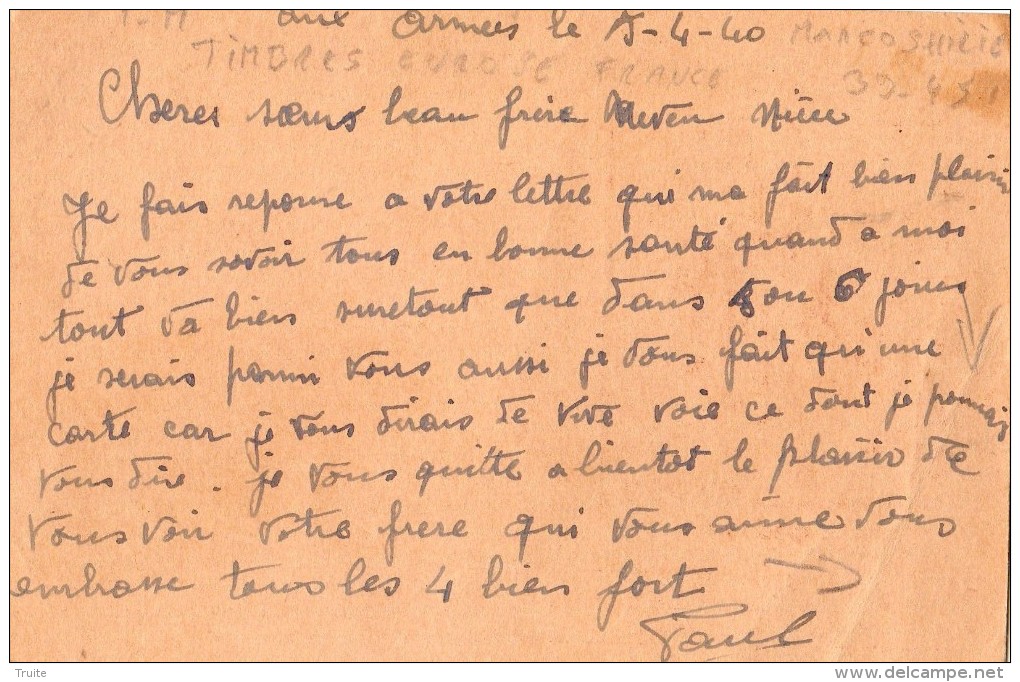 aux armées le 5-4-40
TIMBRES EUROSE FRANCE
39-45
Cheres sœurs beau frère Neveu Nièce
Je fais reponse a votre lettre qui ma fait bien plaisir
de vous savoir tous en bonne santé quand a moi
tout va bien suretout que dans 5 ou 6 jours
je serais parmi vous aussi je vous fait qu'une
carte car je vous dirais de vive voie ce dont je pourrais
vous dire. je vous quitte a bientot le plaisir de
vous voir votre frere qui vous aime vous
embrasse tous les 4 bien fort
Paul
Truite
www.delcampe.net